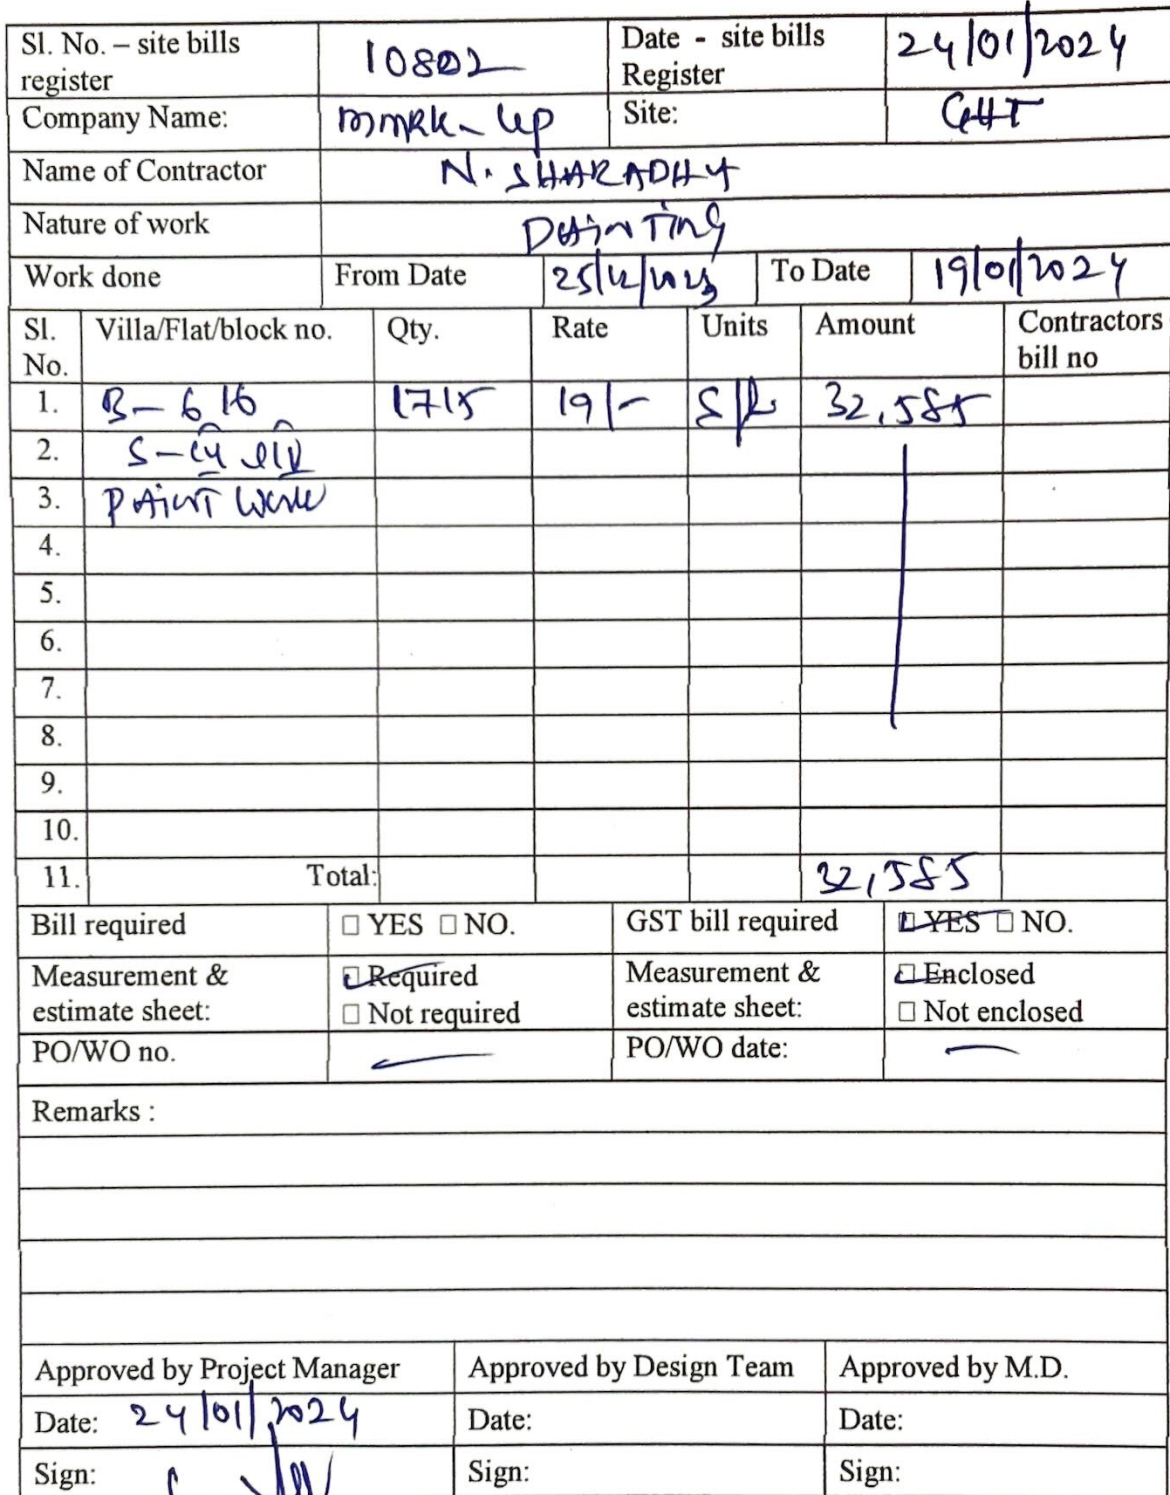 Sl. No. – site bills register 10802 Date - site bills Register 24/01/2024
Company Name: MMRK-LLP Site: GHT
Name of Contractor N. SHARADHY
Nature of work Painting
Work done From Date 25/12/2023 To Date 19/01/2024
Sl. No. Villa/Flat/block no. Qty. Rate Units Amount Contractors bill no
1. B-616 1715 19/- S/ft 32,585
2. S-
3. PAINT Work
4.
5.
6.
7.
8.
9.
10.
11. Total: 32,585
Bill required □ YES □ NO. GST bill required □ YES □ NO.
Measurement & estimate sheet: □ Required □ Not required Measurement & estimate sheet: □ Enclosed □ Not enclosed
PO/WO no. — PO/WO date: —
Remarks :
Approved by Project Manager Approved by Design Team Approved by M.D.
Date: 24/01/2024 Date: Date:
Sign: Sign: Sign: